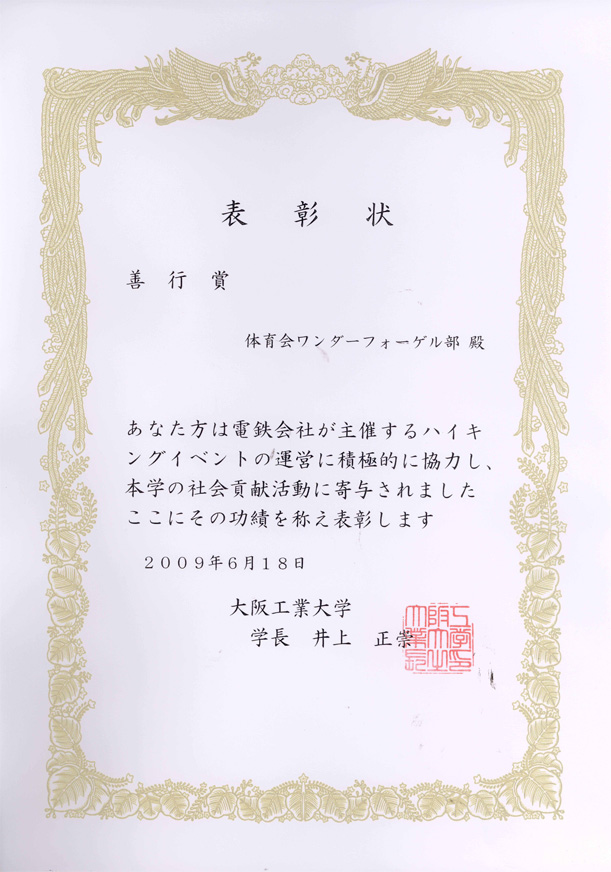 表彰状
善行賞
体育会ワンダーフォーゲル部 殿
あなた方は電鉄会社が主催するハイキ
ングイベントの運営に積極的に協力し、
本学の社会貢献活動に寄与されました
ここにその功績を称え表彰します
２００９年６月１８日
大阪工業大学
学長 井上 正崇